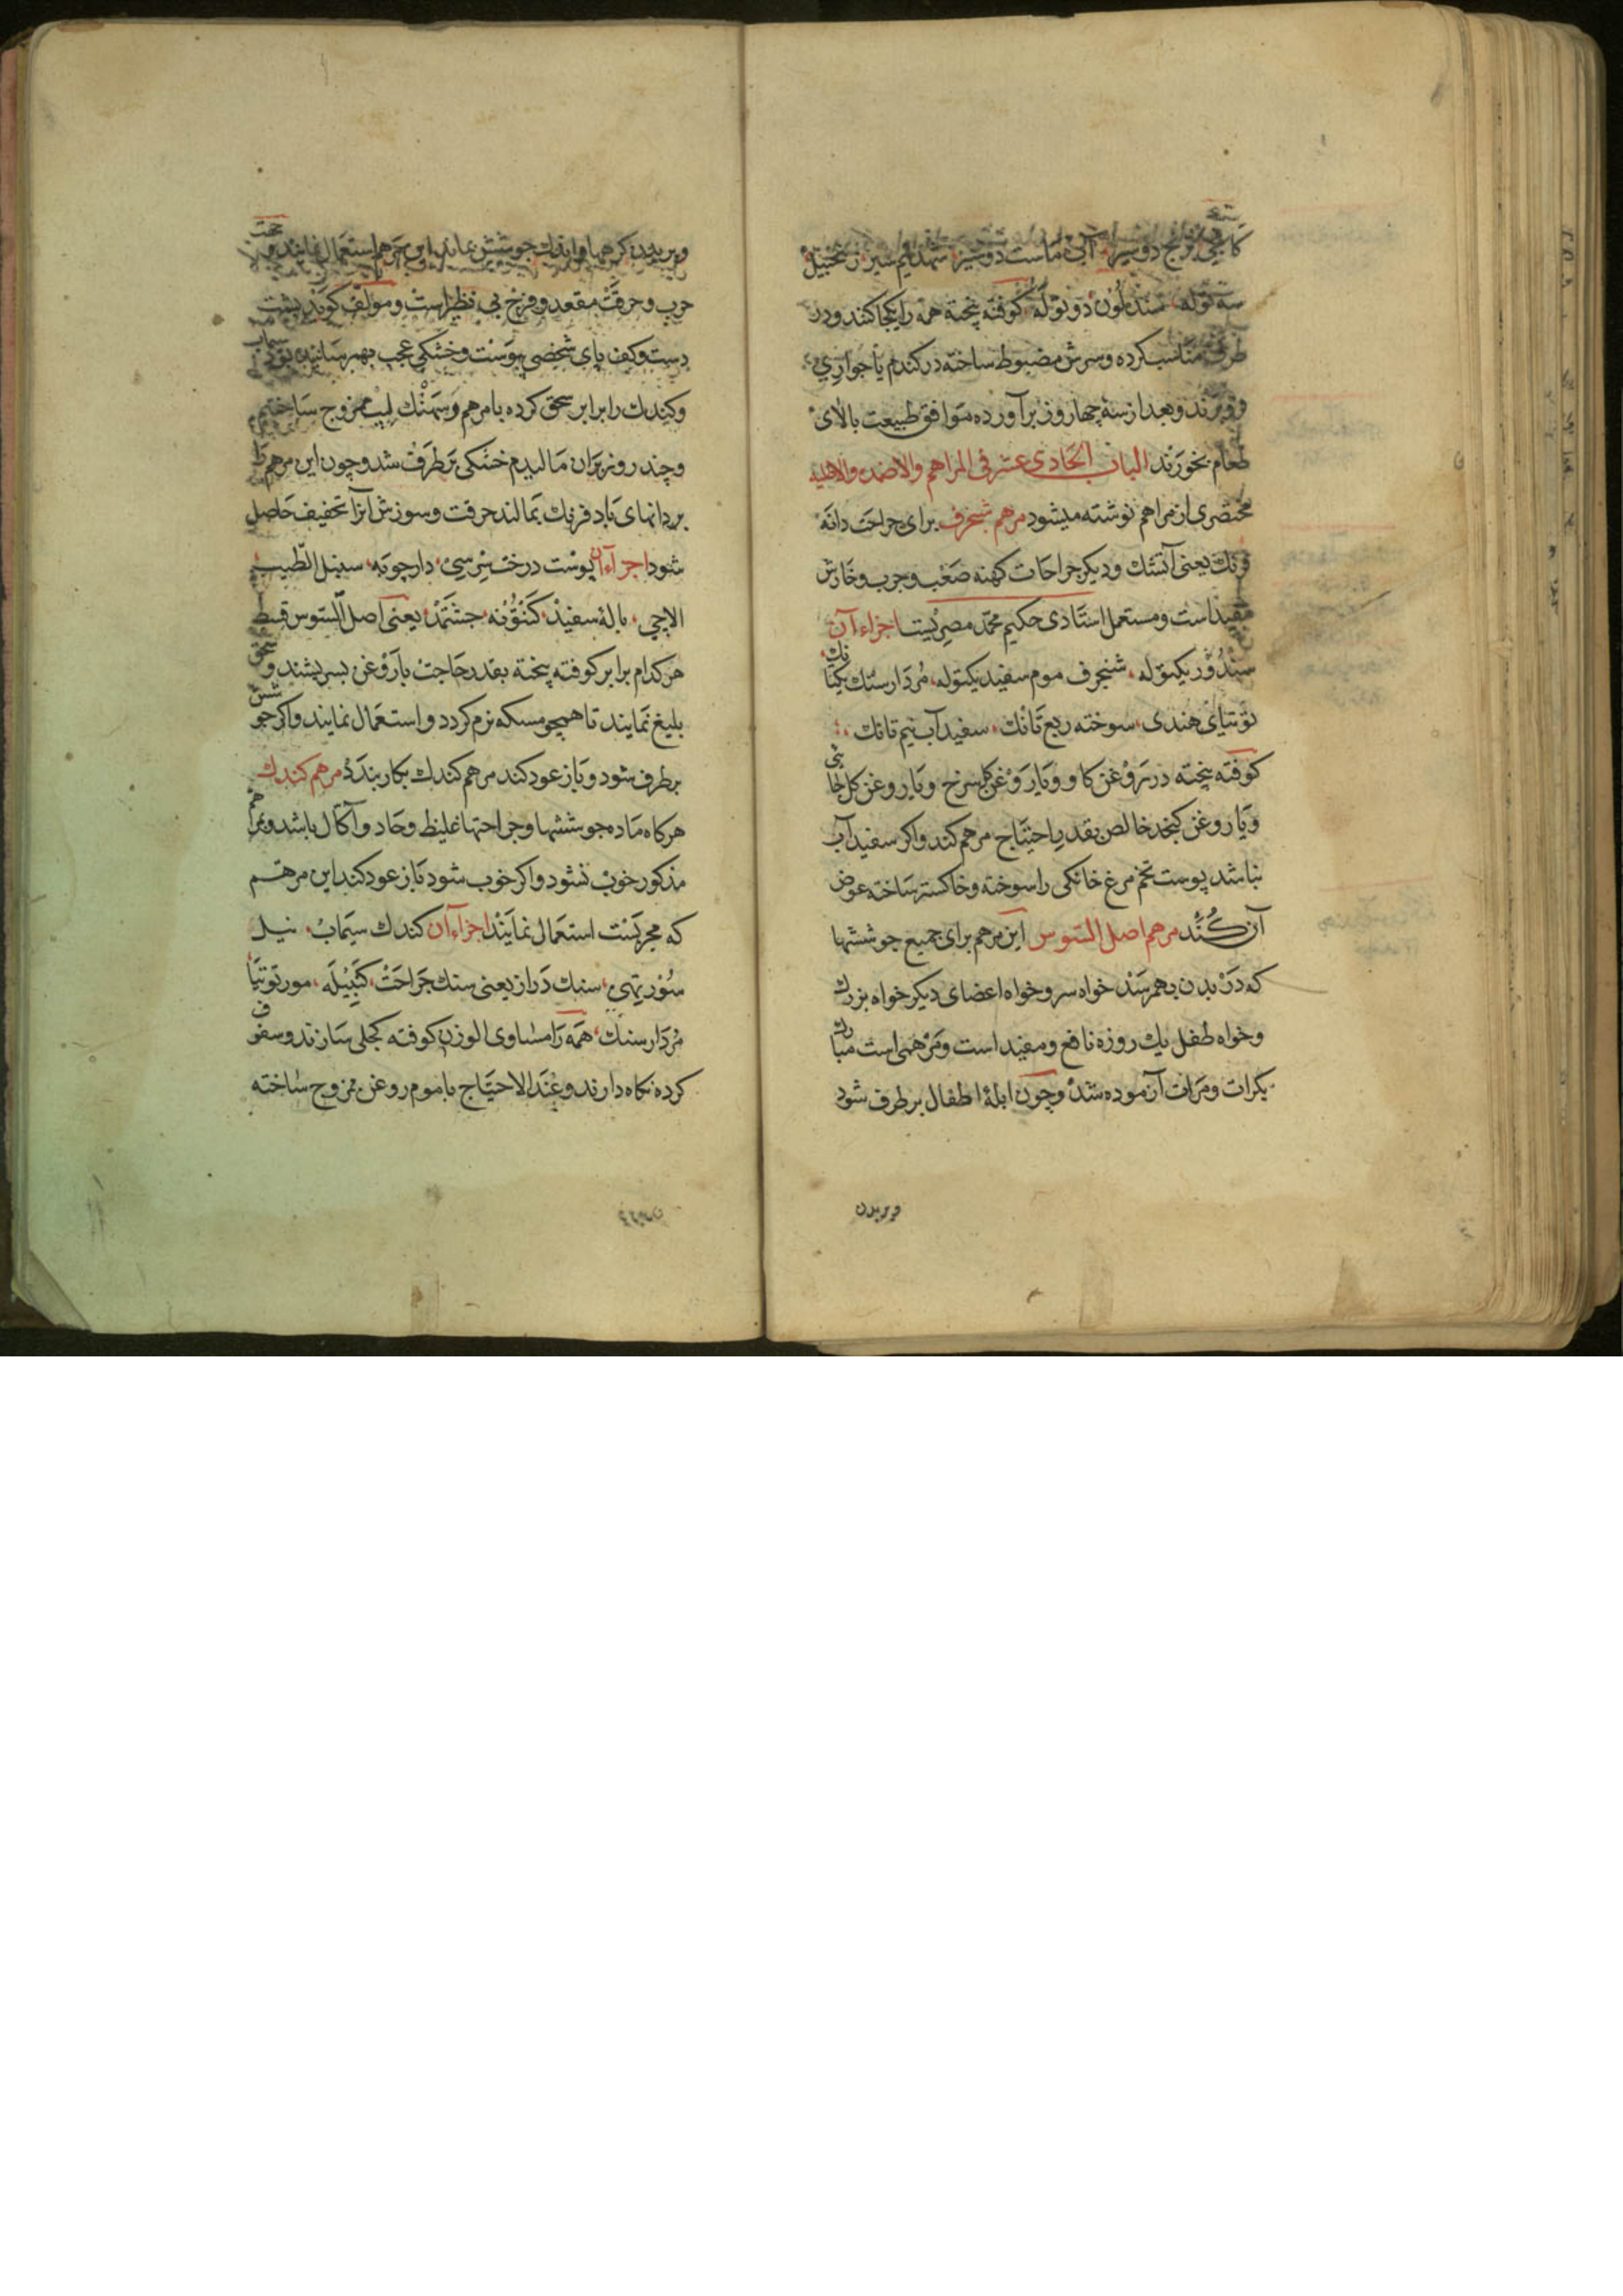 کانجی برنج دو سیر آبی ماست دو سیر شهد نیم سیر زنجبیل
سه توله سندلون دو توله کوفته پخته همه را یکجا کنند و در
ظرف مناسب کرده و سرش مضبوط ساخته در کندم یا جواری
فرو برند و بعد از سه چهار روز برآورده موافق طبیعت بالای
طعام بخورند الباب الحادی عشر فی المراهم والاضمده والاطلیه
مختصری از مراهم نوشته میشود مرهم شنجرف برای جراحت دانه
فرنك یعنی آتشك و دیکر جراحات کهنه صعب و جرب و خارش
مفید است و مستعمل استادی حکیم محمد مصریست اجزاء آن
سندور یکتوله شنجرف موم سفید یکتوله مردارسنك یکتانك
توتیای هندی سوخته ربع تانك سفیدآب نیم تانك
کوفته پخته در روغن کاو و یا روغن کل سرخ و یا روغن کل
و یا روغن کنجد خالص بقدر احتیاج مرهم کند و اکر سفیدآب
نباشد پوست تخم مرغ خانکی را سوخته و خاکستر ساخته عوض
آن کنند مرهم اصل السوس این مرهم برای جمیع جوششها
که در بدن بهمرسند خواه سر و خواه اعضای دیکر خواه بزرك
و خواه طفل یك روزه نافع و مفید است و مرهمی است مبارك
بکرات و مرات آزموده شد و چون ابلۀ اطفال برطرف شود
و بر بدن
و بر بدن کرمها و اندك جوشش بماند این مرهم استعمال نمایند و جهت
جرب و حرقت مقعد و فرج بی نظیر است و مولف کوید پشت
دست و کف پای شخصی پوست و خشکی عجب بهمرسانیده بود سیماب
و کندك را برابر سحق کرده با مرهم ممزوج ساختیم
و چند روز بران مالیدم خشکی برطرف شد و چون این مرهم را
بر دانهای باد فرنك بمالند حرقت و سوزش آنرا تخفیف حاصل
شود اجزاء آن پوست درخت سرسی دارچوبه سنبل الطیب
الاچی بالۀ سفید یعنی اصل السوس قسط
هر کدام برابر کوفته پخته بقدر حاجت با روغن بسریشند و سحق
بلیغ نمایند تا همچو مسکه نرم کردد و استعمال نمایند و اکر جوشش
برطرف شود و باز عود کند مرهم کندك بکار بندد مرهم کندك
هرکاه ماده جوششها و جراحتها غلیظ و حاد و آکال باشد و بمراهم
مذکور خوب نشود و اکر خوب شود باز عود کند این مرهم
که مجربست استعمال نمایند اجزاء آن کندك سیماب نیل
سنك دراز یعنی سنك جراحت کنبیله مورتوتیا
مردارسنك همه را مساوی الوزن کوفته کجلی سازند و سفوف
کرده نکاه دارند و عند الاحتیاج با موم روغن ممزوج ساخته